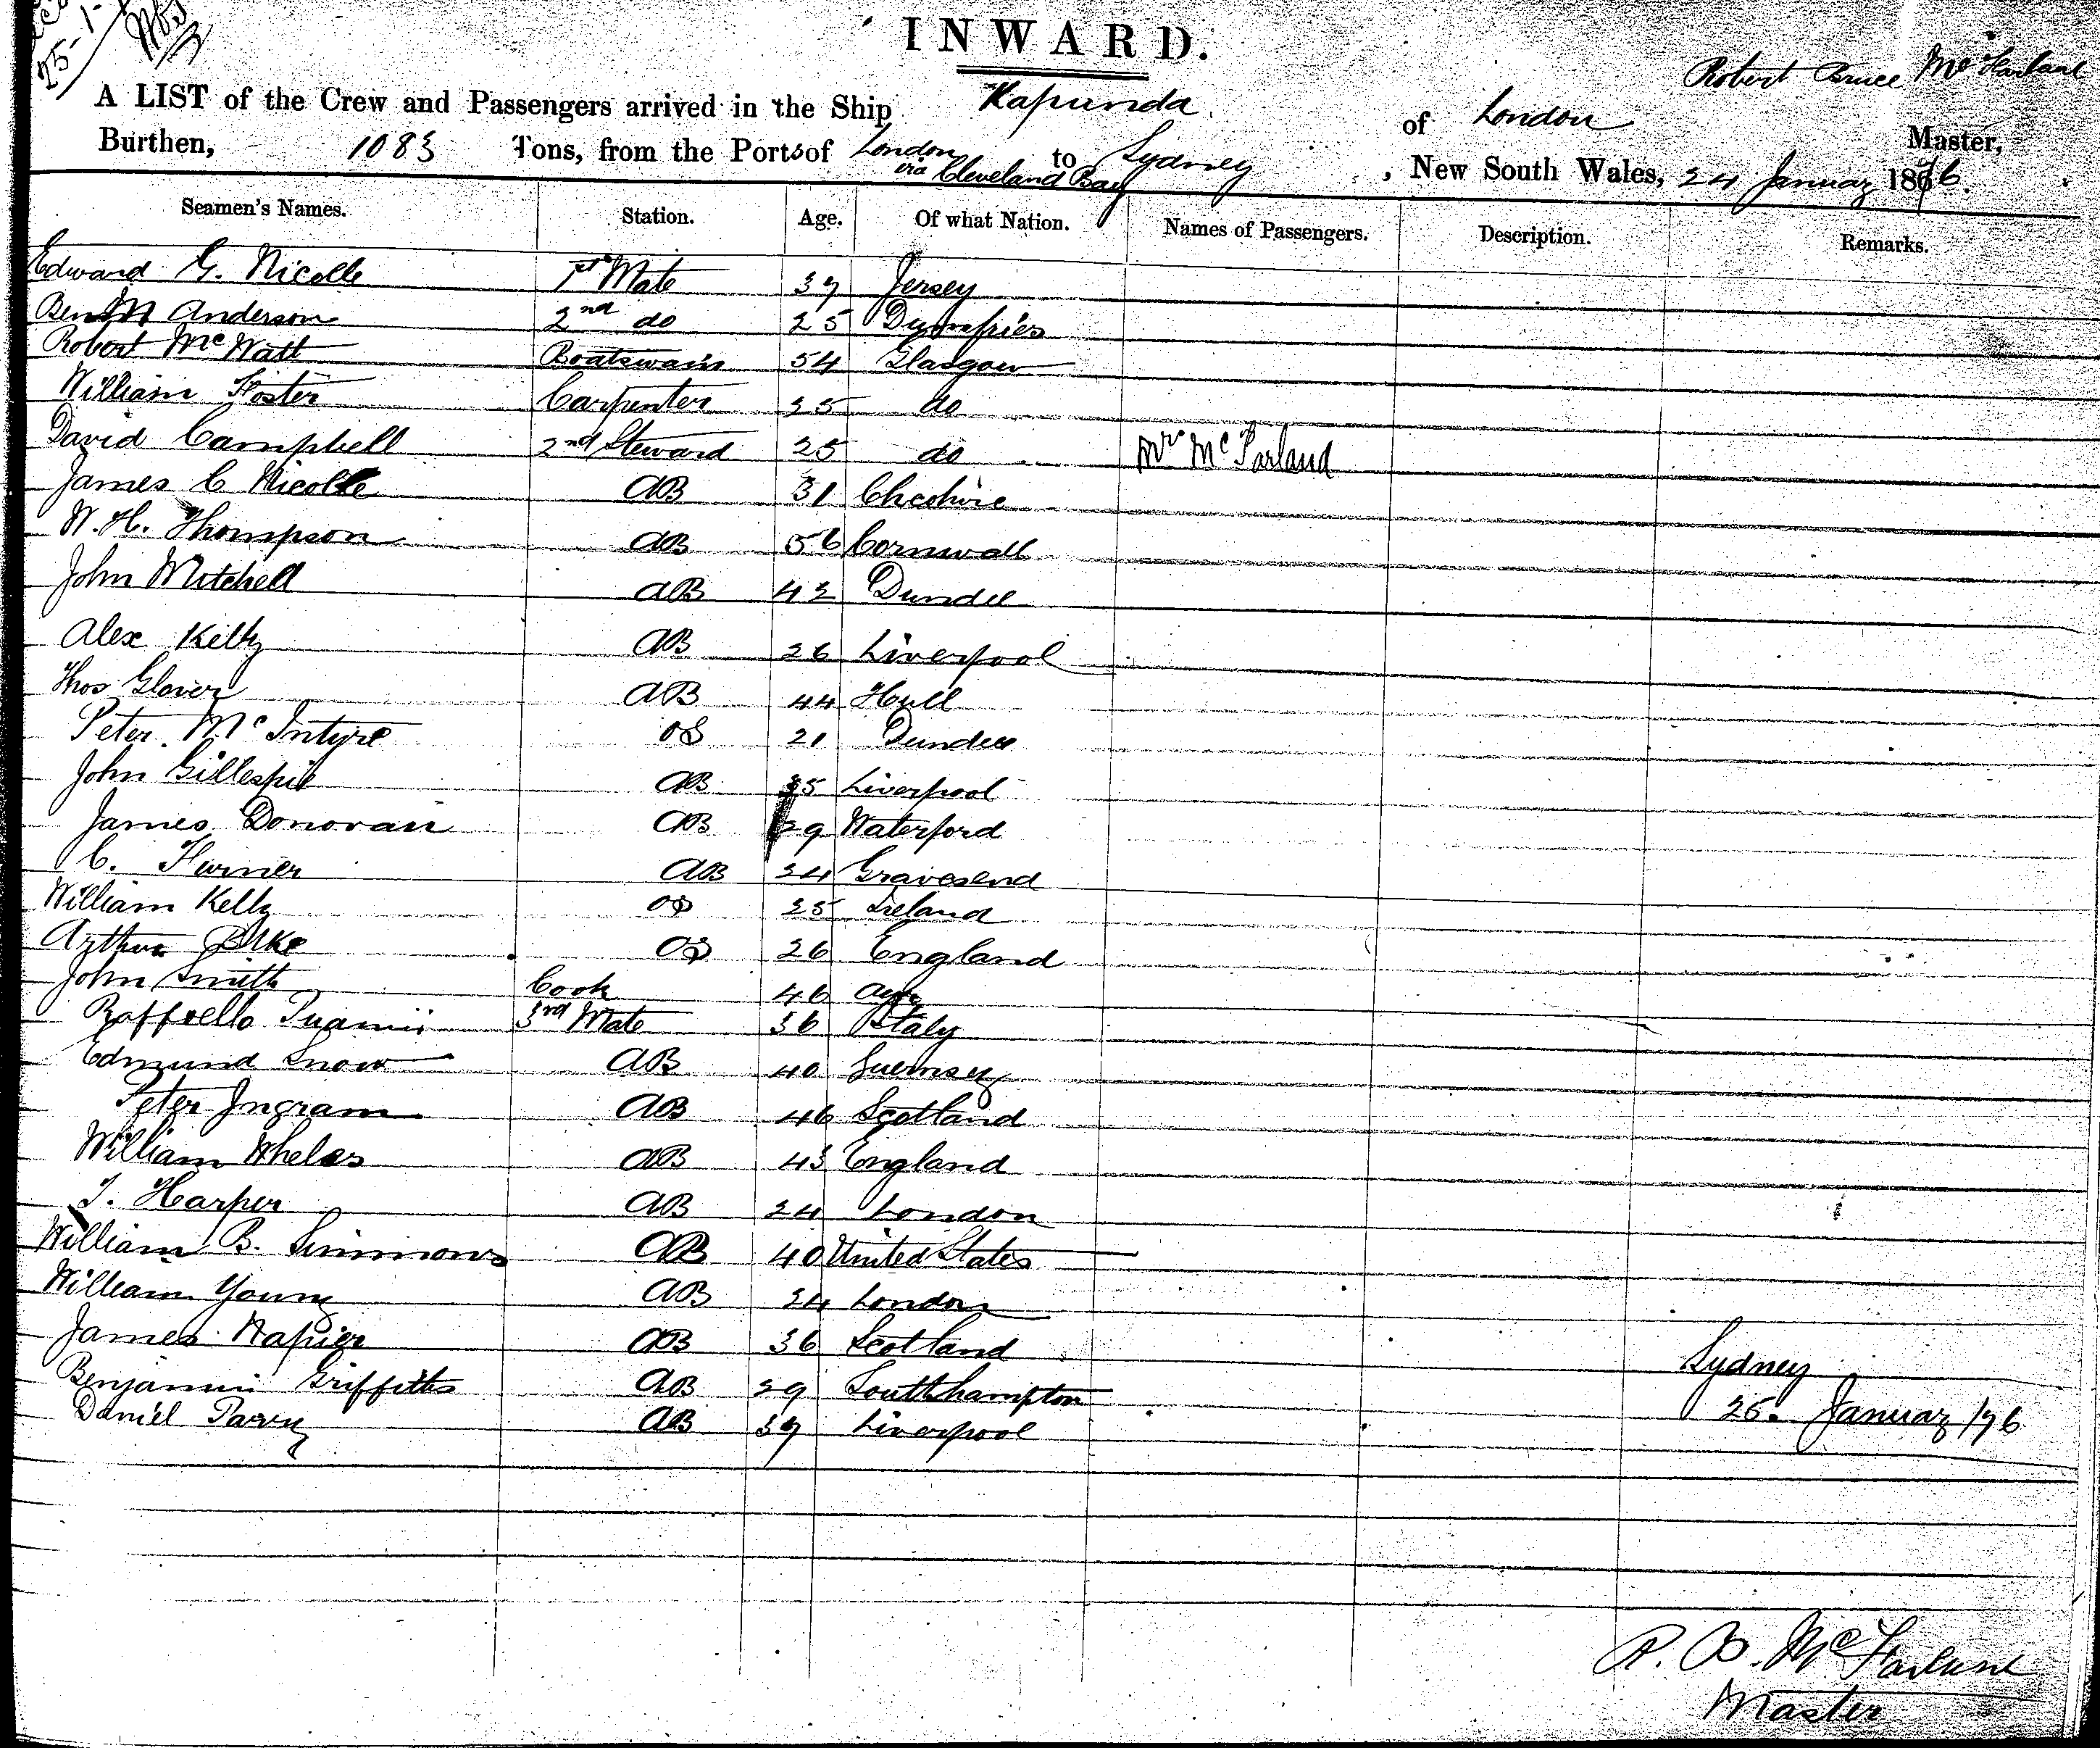 25-1-
INWARD.
Robert Bruce McFarland
A LIST of the Crew and Passengers arrived in the Ship Kapunda of London Master,
Burthen, 1083 Tons, from the Ports of London via Cleveland Bay to Sydney, New South Wales, 24 January 1876.
Seamen's Names. Station. Age. Of what Nation. Names of Passengers. Description. Remarks.
Edward G. Nicolle 1st Mate 39 Jersey
Benj Anderson 2nd do 25 Dumfries
Robert McWatt Boatswain 54 Glasgow
William Foster Carpenter 25 do
David Campbell 2nd Steward 25 do Mrs McFarland
James C Nicolle AB 31 Cheshire
W. H. Thompson AB 56 Cornwall
John Mitchell AB 42 Dundee
Alex Kelly AB 26 Liverpool
Thos Glover AB 44 Hull
Peter McIntyre OS 21 Dundee
John Gillespie AB 35 Liverpool
James Donovan AB 29 Waterford
C. Turner AB 24 Gravesend
William Kelly OS 25 Ireland
Arthur OS 26 England
John Smith Cook 46 Ayr
Raffaello 3rd Mate 36 Italy
Edmund Snow AB 40 Guernsey
Peter Ingram AB 46 Scotland
William Wheles AB 43 England
T. Harper AB 24 London
William B. Simmons AB 40 United States
William Young AB 24 London
James Napier AB 36 Scotland
Benjamin Griffiths AB 29 Southhampton
Daniel Parry AB 39 Liverpool
Sydney
25. January /76
R. B. McFarland
Master